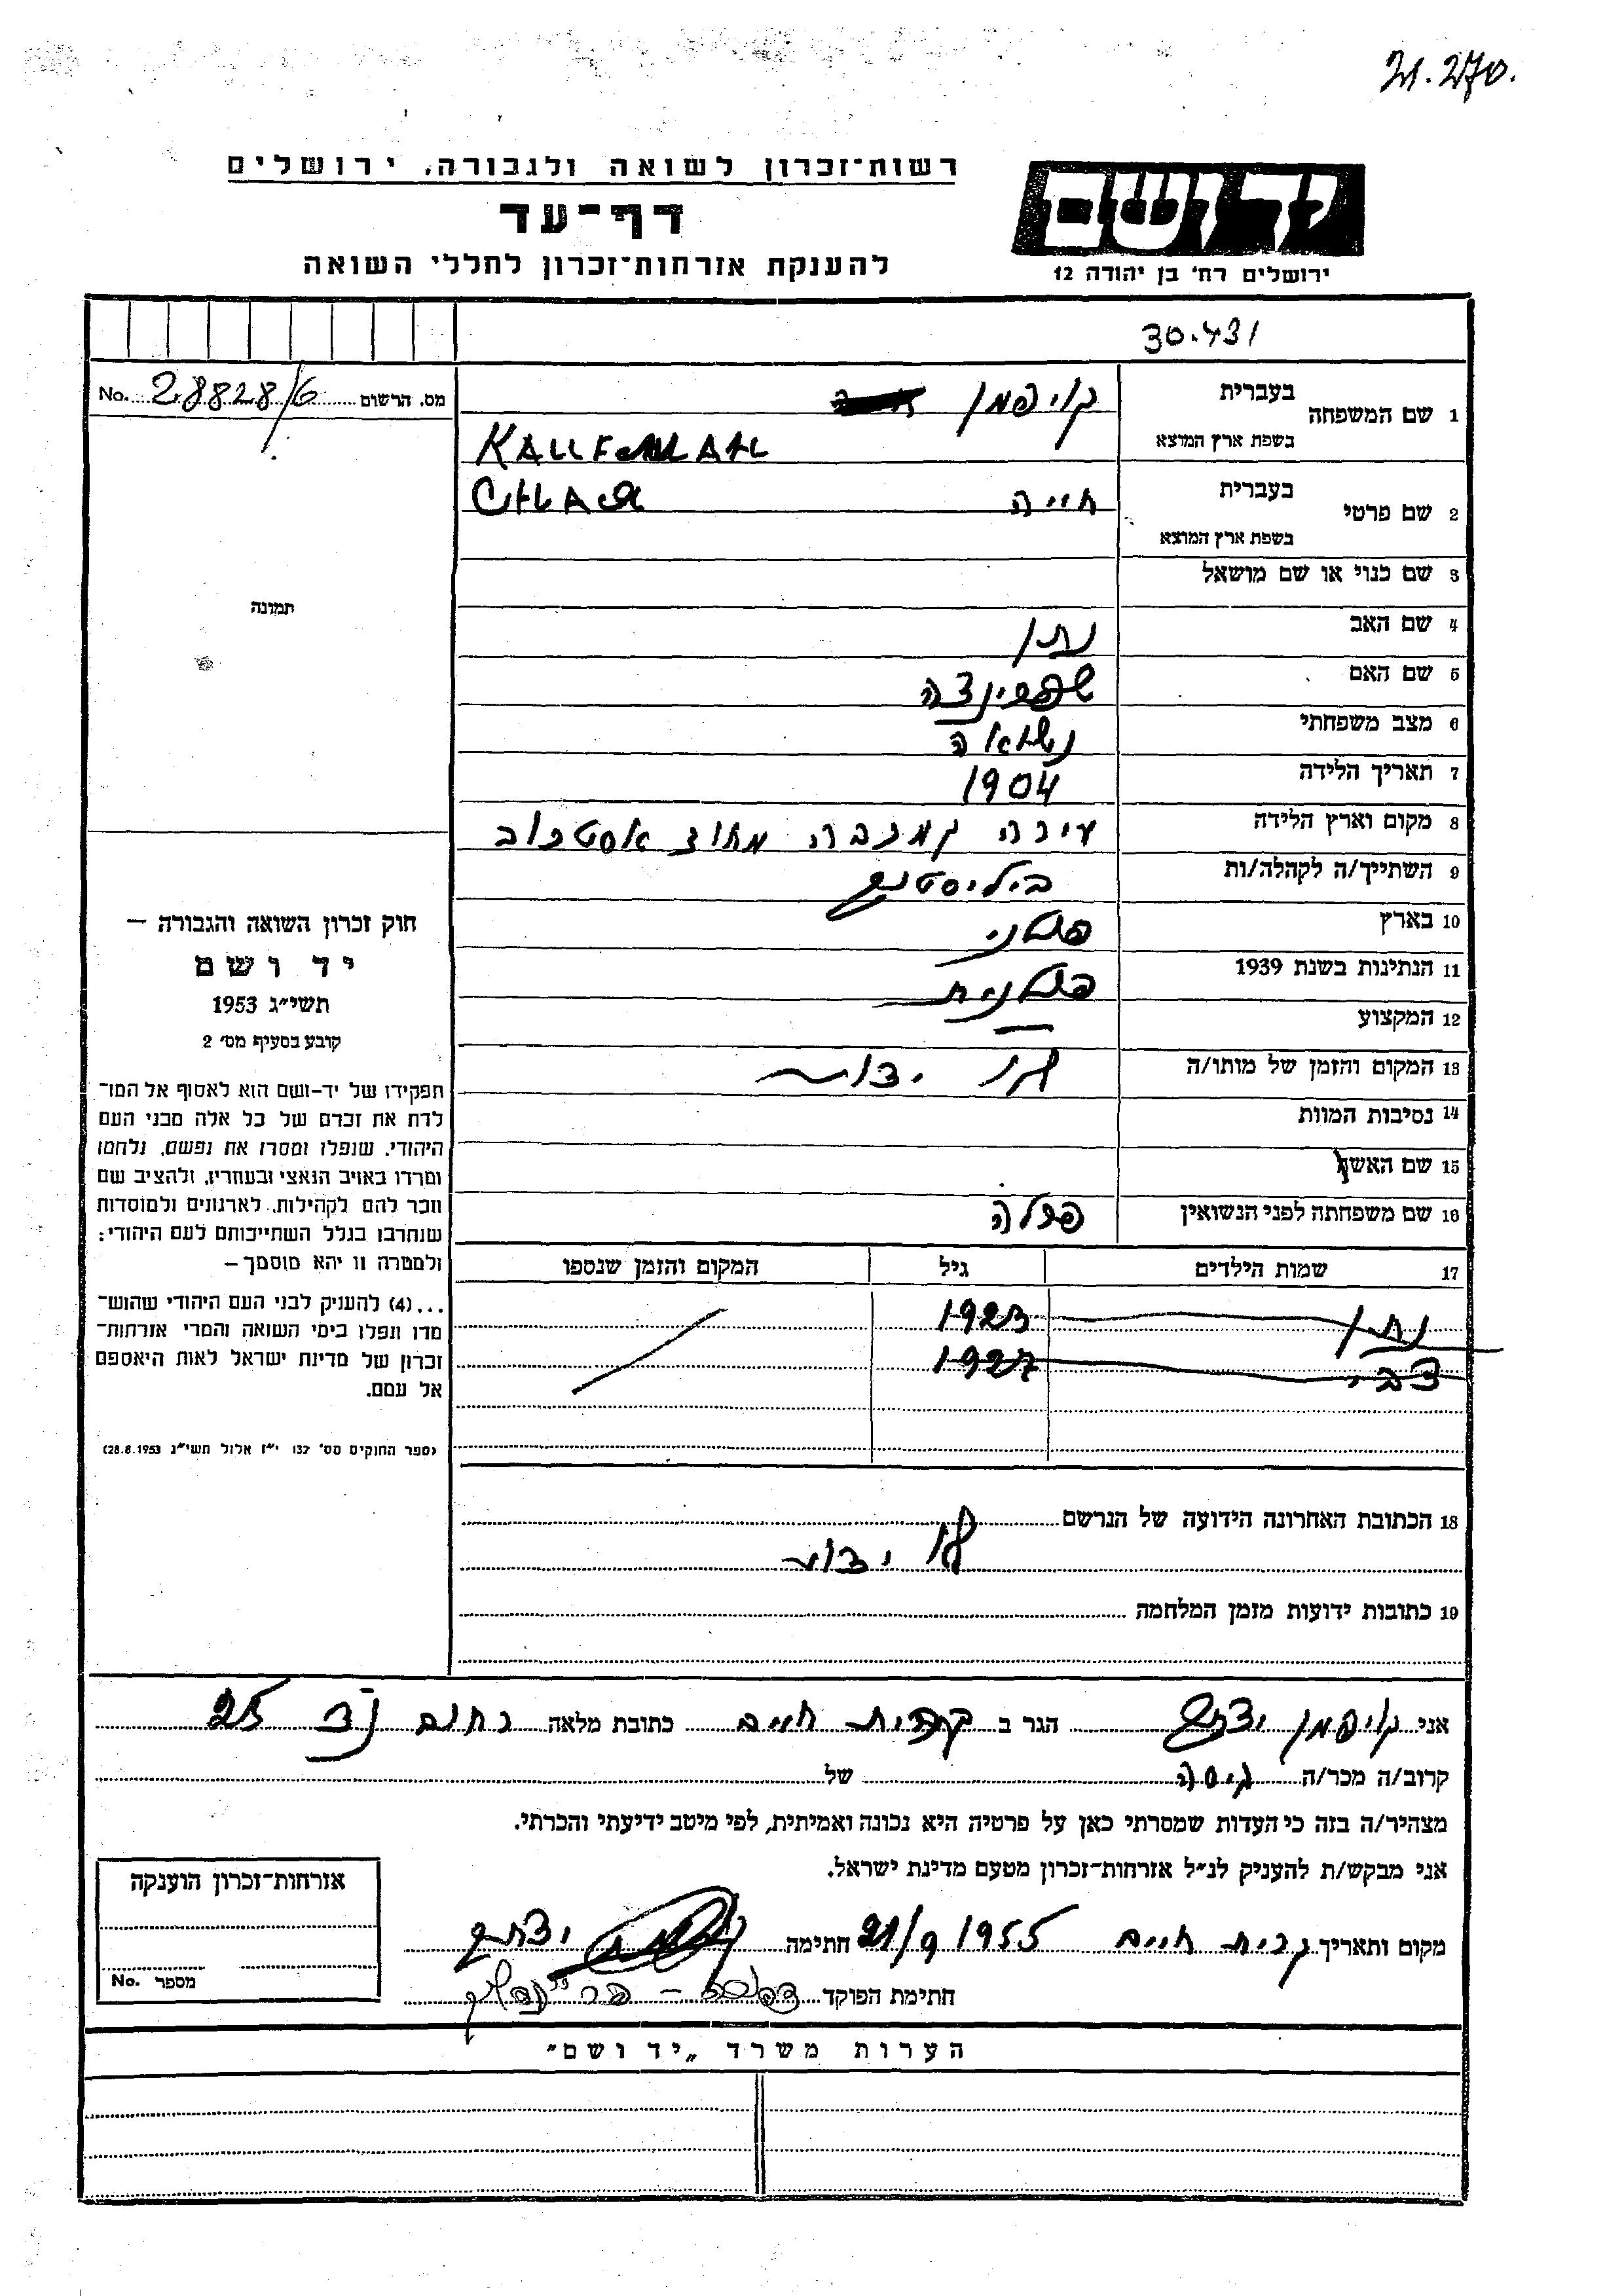 21.270.
רשות־זכרון לשואה ולגבורה, ירושלים
דף־עד
להענקת אזרחות־זכרון לחללי השואה
יד ושם
ירושלים רח' בן יהודה 12
30.431
מס. הרשום 28828/6 No.
1 שם המשפחה
בעברית קויפמן
בשפת ארץ המוצא
2 שם פרטי
בעברית חייה
בשפת ארץ המוצא
3 שם כנוי או שם מושאל
4 שם האב נתן
5 שם האם שפרינצה
6 מצב משפחתי נשואה
7 תאריך הלידה 1904
8 מקום וארץ הלידה מחוז
9 השתייך/ה לקהלה/ות ביליסטוק
10 בארץ פולני
11 הנתינות בשנת 1939 פולנית
12 המקצוע —
13 המקום והזמן של מותו/ה לא ידוע
14 נסיבות המוות
15 שם האשה
16 שם משפחתה לפני הנשואין
17 שמות הילדים גיל המקום והזמן שנספו
נתן 1923
צבי 1927
18 הכתובת האחרונה הידועה של הנרשם
לא ידוע
19 כתובות ידועות מזמן המלחמה
תמונה
חוק זכרון השואה והגבורה —
יד ושם
תשי״ג 1953
קובע בסעיף מס' 2
תפקידו של יד-ושם הוא לאסוף אל המו־
לדת את זכרם של כל אלה מבני העם
היהודי, שנפלו ומסרו את נפשם, נלחמו
ומרדו באויב הנאצי ובעוזריו, ולהציב שם
וזכר להם לקהילות, לארגונים ולמוסדות
שנחרבו בגלל השתייכותם לעם היהודי;
ולמטרה זו יהא מוסמך —
...(4) להעניק לבני העם היהודי שהוש־
מדו ונפלו בימי השואה והמרי אזרחות־
זכרון של מדינת ישראל לאות היאספם
אל עמם.
(ספר החוקים מס' 132 י״ז אלול תשי״ג 28.8.1953)
אני קויפמן יצחק הגר ב קרית חיים כתובת מלאה רחוב 25
קרוב/ה מכר/ה גיסה של
מצהיר/ה בזה כי העדות שמסרתי כאן על פרטיה היא נכונה ואמיתית, לפי מיטב ידיעתי והכרתי.
אני מבקש/ת להעניק לנ״ל אזרחות־זכרון מטעם מדינת ישראל.
מקום ותאריך קרית חיים 21/9 1955 חתימה יצחק
חתימת הפוקד
אזרחות־זכרון הוענקה
מספר No.
הערות משרד „יד ושם"